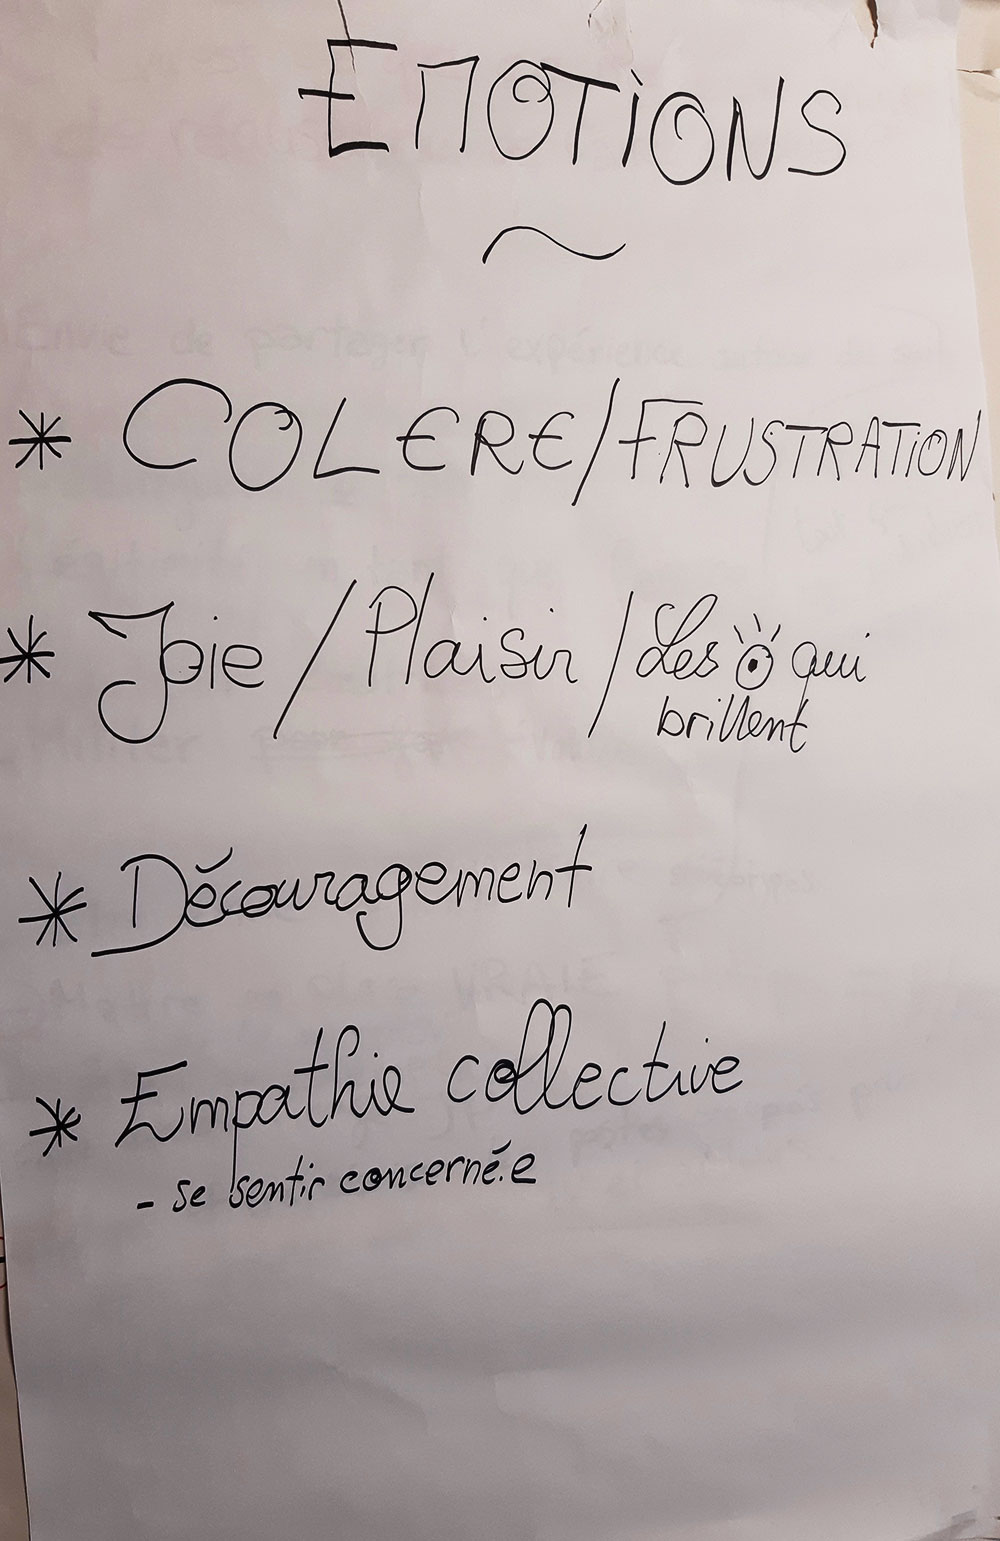 EMOTIONS
* COLERE/FRUSTRATION
* Joie / Plaisir / Les qui
brillent
* Découragement
* Empathie collective
- se sentir concerné.e